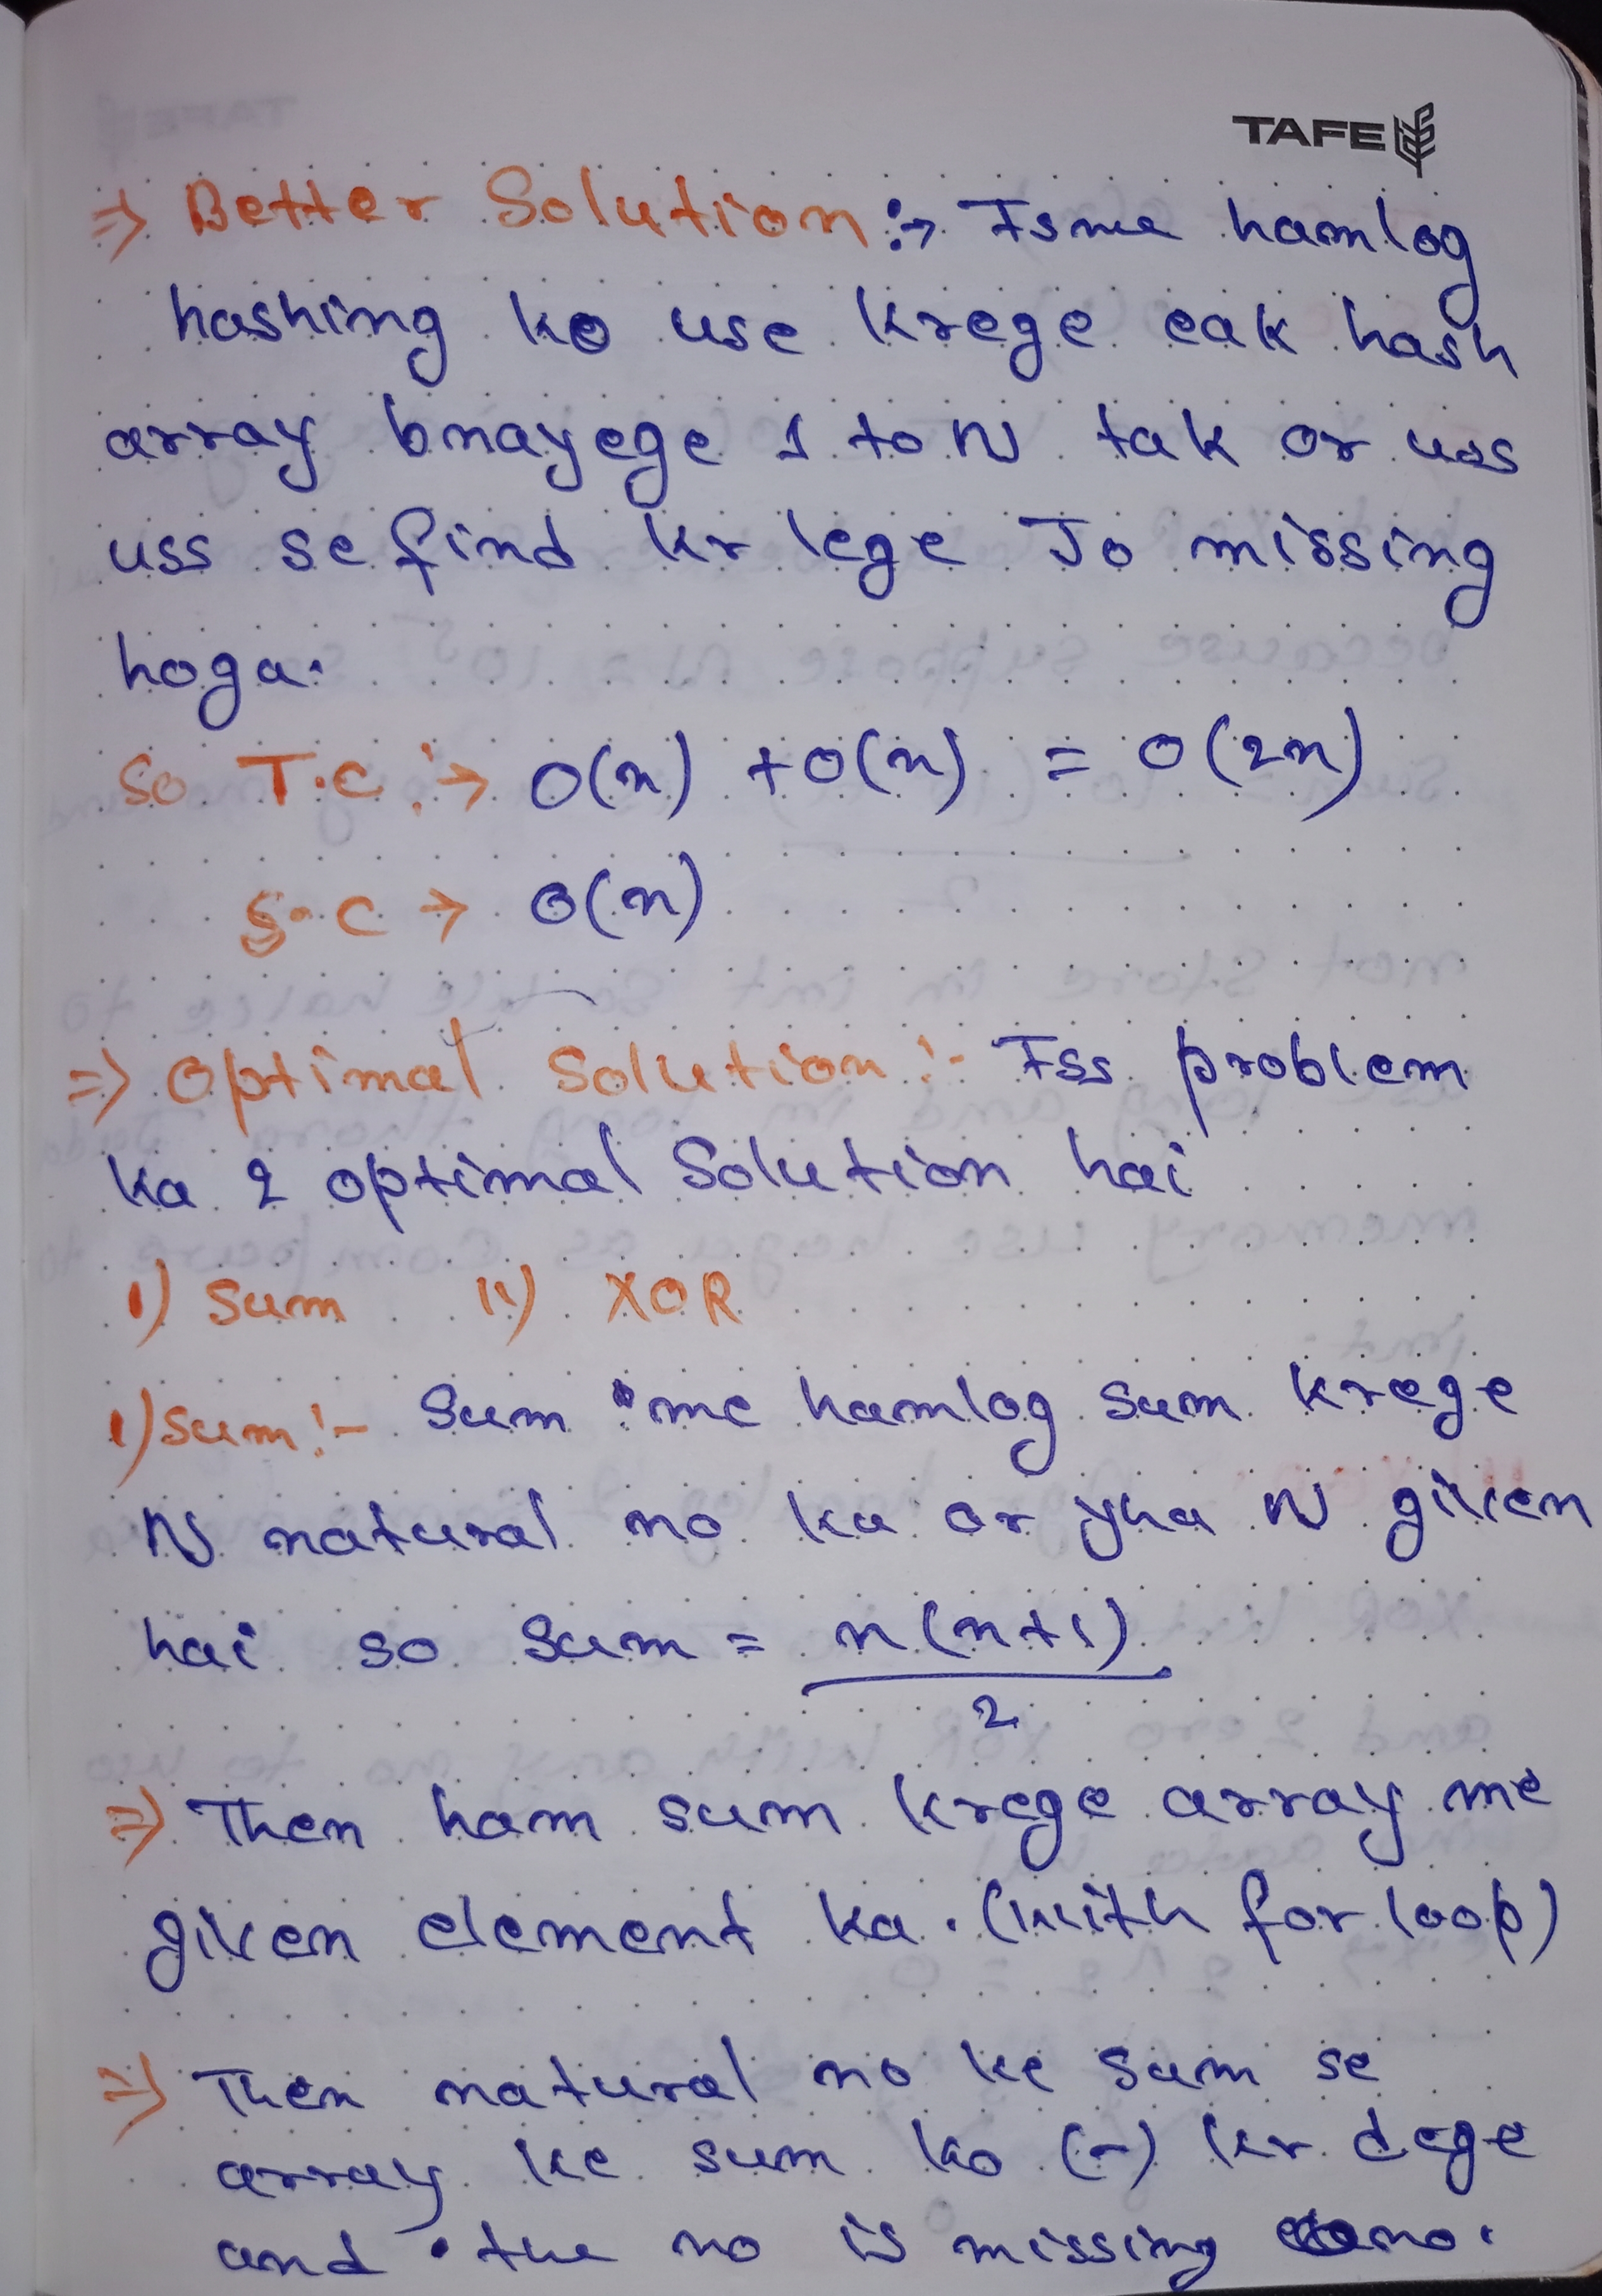 TAFE
⇒ Better Solution :→ Isme hamlog
hashing ko use krege eak hash
array bnayege 1 to N tak or uss
uss se find kr lege Jo missing
hoga.
So T.C :→ O(n) + O(n) = O(2n)
S.C → O(n)
⇒ Optimal Solution :- Iss problem
ka 2 optimal Solution hai
i) Sum ii) XOR
i) Sum :- Sum me hamlog sum krege
N natural no ka or yha N given
hai so sum = n(n+1)
2
⇒ Then ham sum krege array me
given element ka. (with for loop)
⇒ Then natural no ke sum se
array ke sum ko (-) kr dege
and the no is missing no.